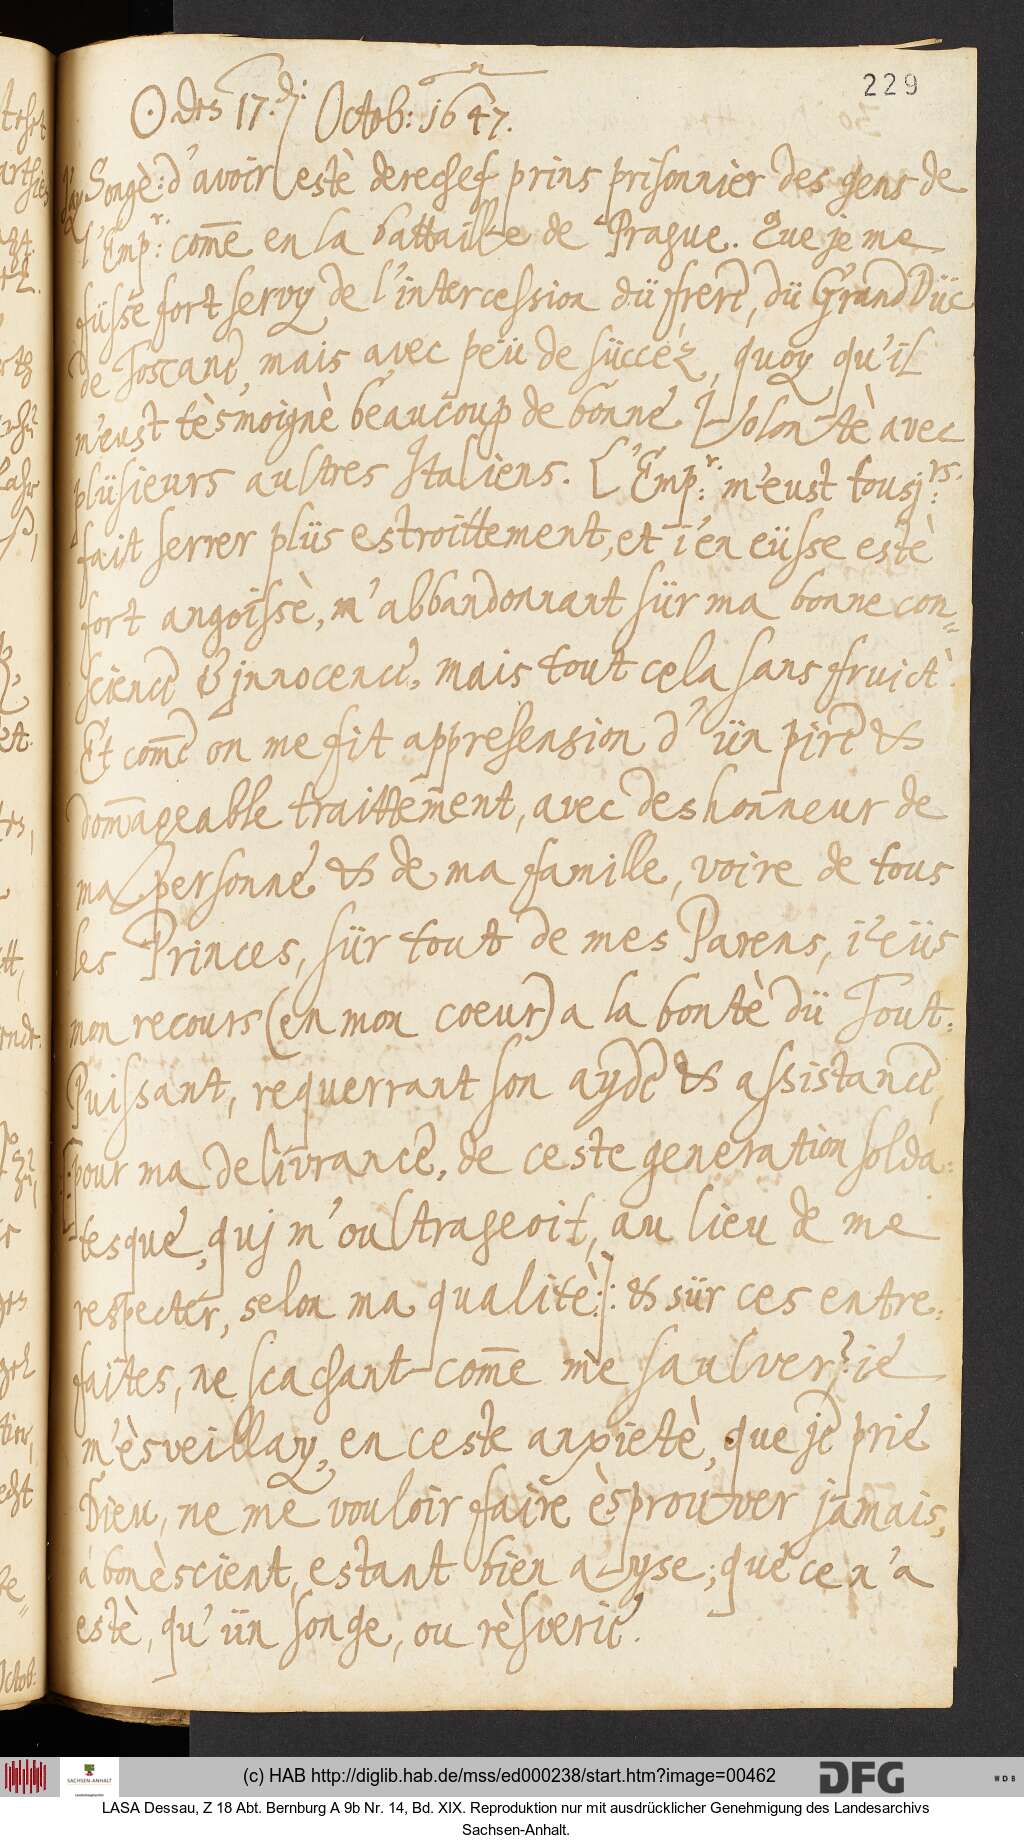 229
☉ des 17.d: Octob: 1647.
J'ay Songè: d'avoir estè derechef prins prisonnier des gens de
l'Emp.r: com̅e en la battaille de Prague. Que je me
füsse fort servy de l'intercession dü frere, dü Grand Düc
de Toscane, mais avec peü de süccéz, quoy qu'il
m'eust tèsmoignè beaucoup de bonne Volontè avec
plüsieurs aultres Italiens. L'Emp.r: m'eust tousj:rs.
fait serrer plüs estroittement, et i'en eüsse estè
fort angoissè, m'abbandonnant sür ma bonne con=
science & jnnocence, mais tout cela sans fruict.
Et com̅e on me fit apprehension d'ün pire &
dom̅ageable traittement, avec deshonneur de
ma personne & de ma famille, voire de tous
les Princes, sür tout de mes Parens, i'eüs
mon recours (en mon coeur) a la bontè dü Tout:
Puissant, requerrant son ayde & assistance,
[:pour ma delivrance, de ceste generation solda:
tesque, quj m'oultrageoit, au lieu de me
respecter, selon ma qualitè:]: & sür ces entre:
faites, ne scachant com̅e me saulver? ie
m'èsveillay, en ceste anxietè, que je prie
Dieu, ne me vouloir faire èsprouver jamais,
a bonèscient, estant bien ayse; que ce n'a
estè, qu'ün songe, ou rèsverie.
Octob:
(c) HAB http://diglib.hab.de/mss/ed000238/start.htm?image=00462
SACHSEN-ANHALT
DFG
W D B
LASA Dessau, Z 18 Abt. Bernburg A 9b Nr. 14, Bd. XIX. Reproduktion nur mit ausdrücklicher Genehmigung des Landesarchivs
Sachsen-Anhalt.